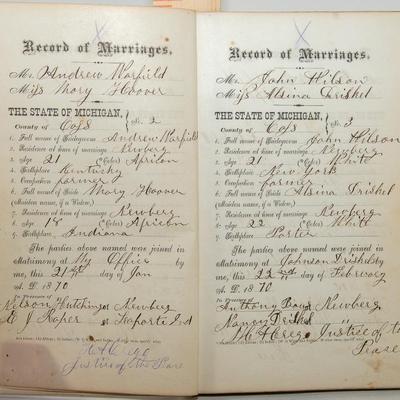 Record of Marriages,
Mr. Andrew Warfield
Miss Mary Hoover
THE STATE OF MICHIGAN,
County of Cass No. 2
1. Full name of Bridegroom Andrew Warfield
2. Residence at time of marriage Newberg
3. Age 21 (Color) African
4. Birthplace Kentucky
5. Occupation farmer
6. Full name of Bride Mary Hoover
(Maiden name, if a Widow.)
7. Residence at time of marriage Newberg
8. Age 18 (Color) African
9. Birthplace Indiana
The parties above named were joined in
Matrimony at My Office by
me, this 21st day of Jan
A. D. 1870
In Presence of
Nelson Hutchins of Newberg
E J Raper of Laporte Ind
H H Crego
Justice of the Peace
Record of Marriages,
Mr. John Wilson
Miss Alsina Driskel
THE STATE OF MICHIGAN,
County of Cass No. 3
1. Full name of Bridegroom John Wilson
2. Residence at time of marriage Newberg
3. Age 21 (Color) White
4. Birthplace New York
5. Occupation farmer
6. Full name of Bride Alsina Driskel
(Maiden name, if a Widow.)
7. Residence at time of marriage Newberg
8. Age 22 (Color) White
9. Birthplace Porter
The parties above named were joined in
Matrimony at Johnson Driskels by
me, this 22nd day of February
A. D. 1870
In Presence of
Anthony Newberg
Nancy Driskel
H H Crego Justice of the
Pease